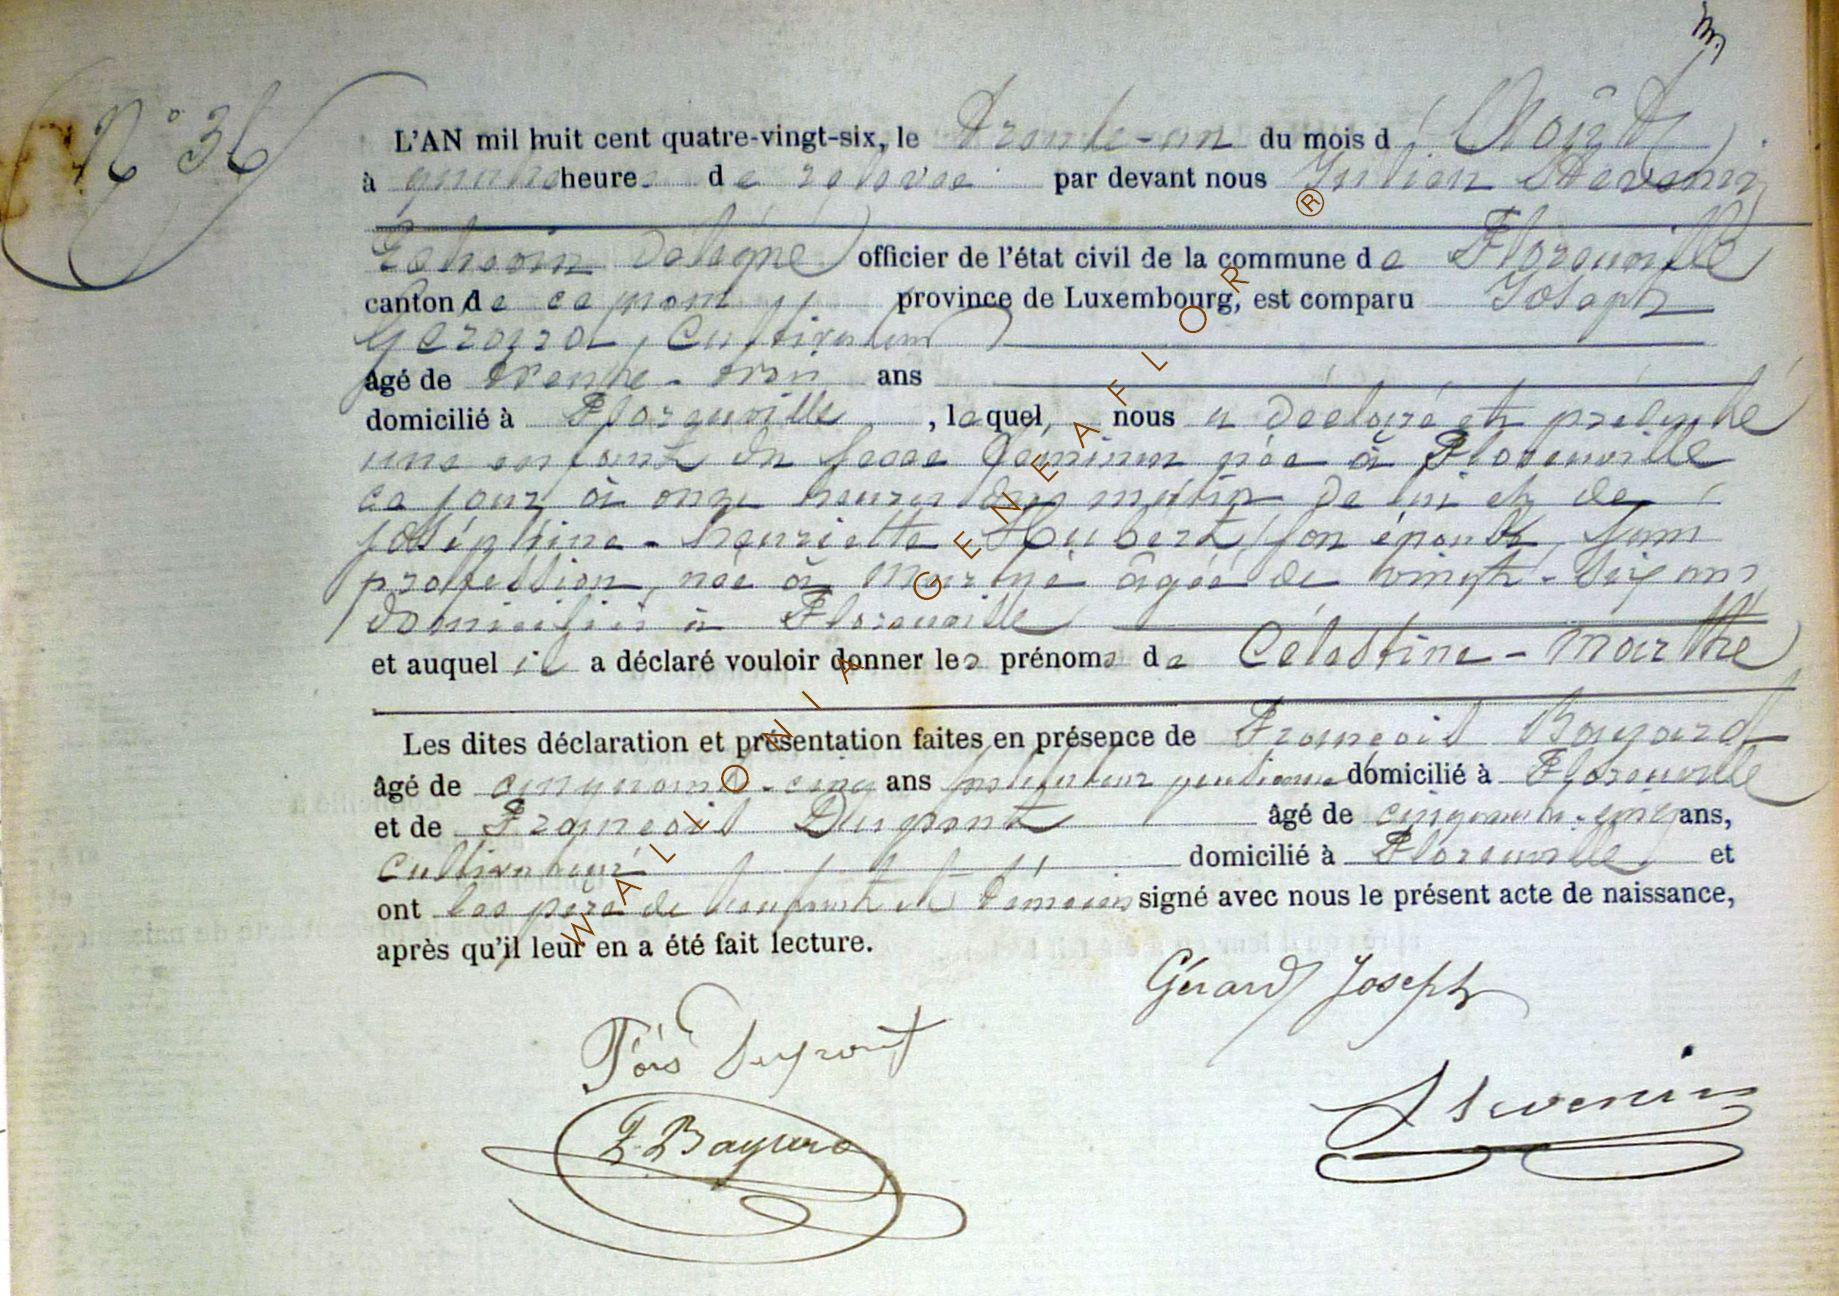 N° 36
L'AN mil huit cent quatre-vingt-six, le trente-un du mois d' Août
à quatre heures de relevée par devant nous Julien Stevenin
Echevin délégué officier de l'état civil de la commune de Florenville
canton de ce nom province de Luxembourg, est comparu Joseph
Gérard, Cultivateur
âgé de trente-trois ans
domicilié à Florenville, lequel, nous a déclaré et présenté
une enfant du sexe féminin née à Florenville
ce jour à onze heures du matin de lui et de
Joséphine-henriette Hubert, son épouse, sans
profession, née à âgée de vingt-six ans
domiciliés à Florenville
et auquel il a déclaré vouloir donner les prénoms de Célestine-Marthe
Les dites déclaration et présentation faites en présence de François Bayard
âgé de cinquante-cinq ans instituteur pensionné domicilié à Florenville
et de François Dupont âgé de cinquante-cinq ans,
cultivateur domicilié à Florenville et
ont les père de l'enfant et témoins signé avec nous le présent acte de naissance,
après qu'il leur en a été fait lecture.
Gérard Joseph
Fçois Dupont
Stevenin
F. Bayard
WALLONIA GENEAFLOR ®